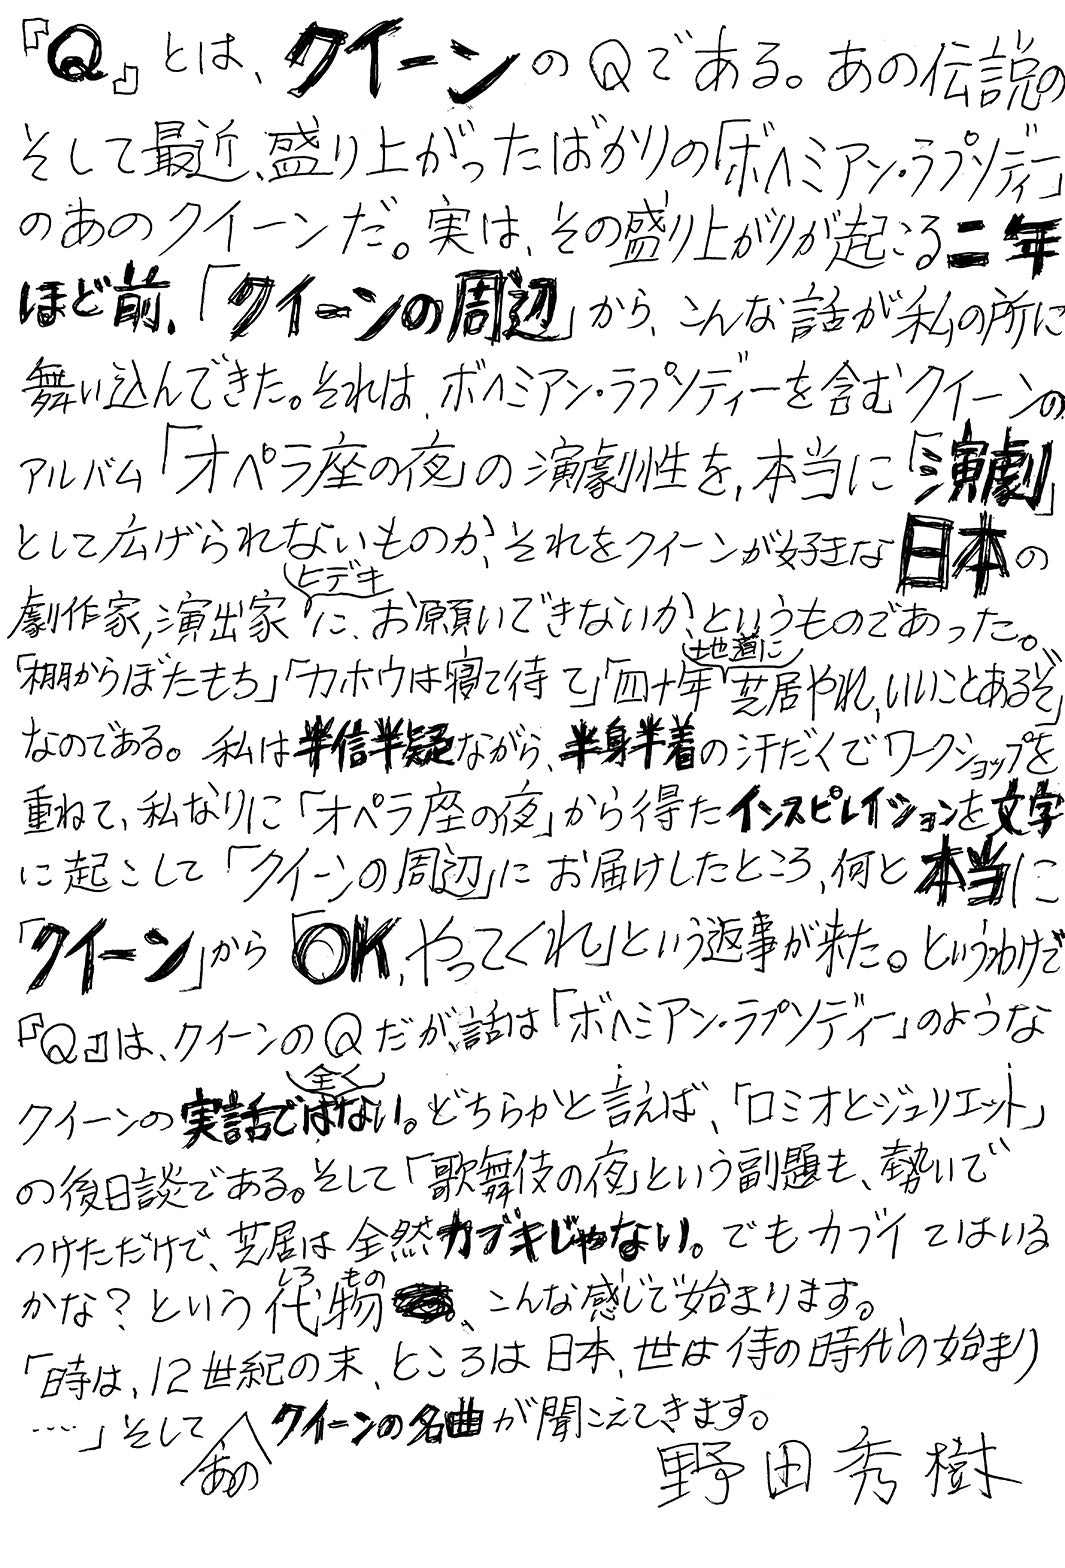 『Q』とは、クイーンのQである。あの伝説の
そして最近、盛り上がったばかりの「ボヘミアン・ラプソディー」
のあのクイーンだ。実は、その盛り上がりが起こる二年
ほど前、「クイーンの周辺」から、こんな話が私の所に
舞い込んできた。それは、ボヘミアン・ラプソディーを含むクイーンの
アルバム「オペラ座の夜」の演劇性を、本当に「演劇」
として広げられないものか、それをクイーンが好きな日本の
劇作家、演出家ヒデキに、お願いできないか、というものであった。
「棚からぼたもち」「カホウは寝て待て」「四十年地道に芝居やれ、いいことあるぞ」
なのである。私は半信半疑ながら、半身半着の汗だくでワークショップを
重ねて、私なりに「オペラ座の夜」から得たインスピレイションを文字
に起こして「クイーンの周辺」にお届けしたところ、何と本当に
「クイーン」から「OK、やってくれ」という返事が来た。というわけで
『Q』は、クイーンのQだが、話は「ボヘミアン・ラプソディー」のような
クイーンの実話では全くない。どちらかと言えば、「ロミオとジュリエット」
の後日談である。そして「歌舞伎の夜」という副題も、勢いで
つけただけで、芝居は全然カブキじゃない。でもカブイてはいる
かな?という代物しろもの、こんな感じで始まります。
「時は、12世紀の末、ところは日本、世は侍の時代の始まり
……」そしてあのクイーンの名曲が聞こえてきます。
野田秀樹